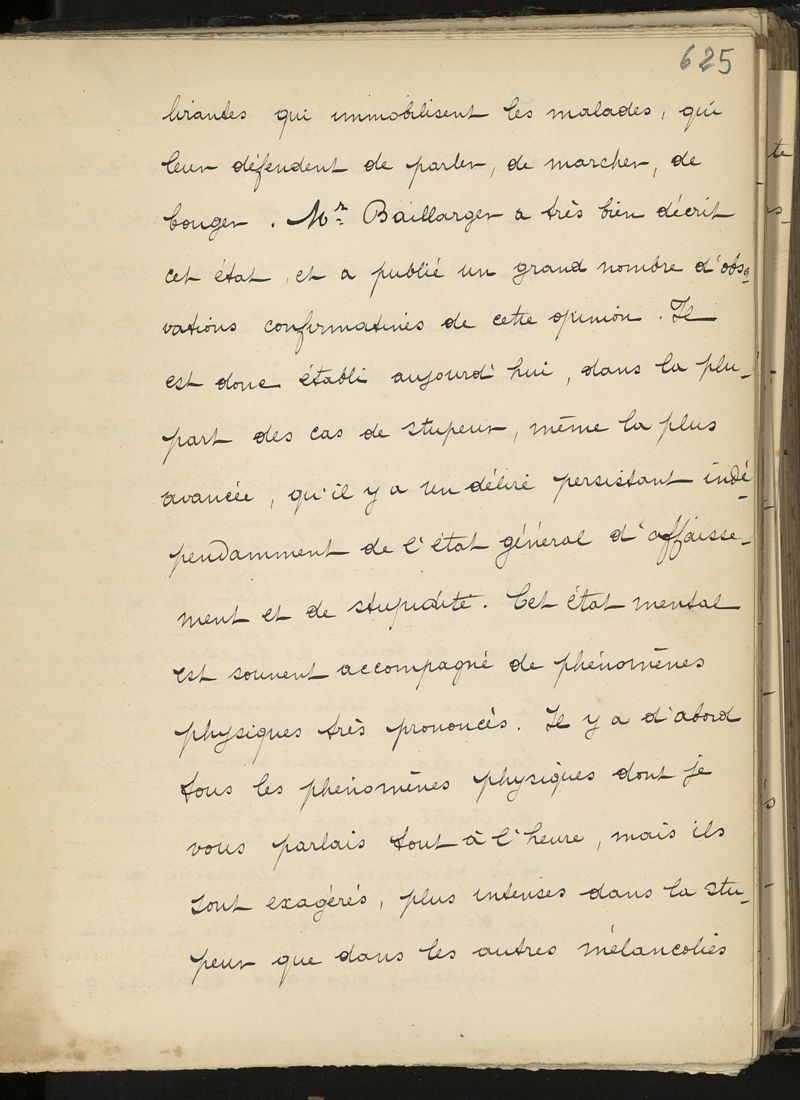 625
lirantes qui immobilisent les malades, qui
leur défendent de parler, de marcher, de
bouger. Mr Baillarger a très bien décrit
cet état, et a publié un grand nombre d'obser-
vations confirmatives de cette opinion. Il
est donc établi aujourd'hui, dans la plu-
part des cas de stupeur, même la plus
avancée, qu'il y a un délire persistant indé-
pendamment de l'état général d'affaisse-
ment et de stupidité. Cet état mental
est souvent accompagné de phénomènes
physiques très prononcés. Il y a d'abord
tous les phénomènes physiques dont je
vous parlais tout à l'heure, mais ils
sont exagérés, plus intenses dans la stu-
peur que dans les autres mélancolies